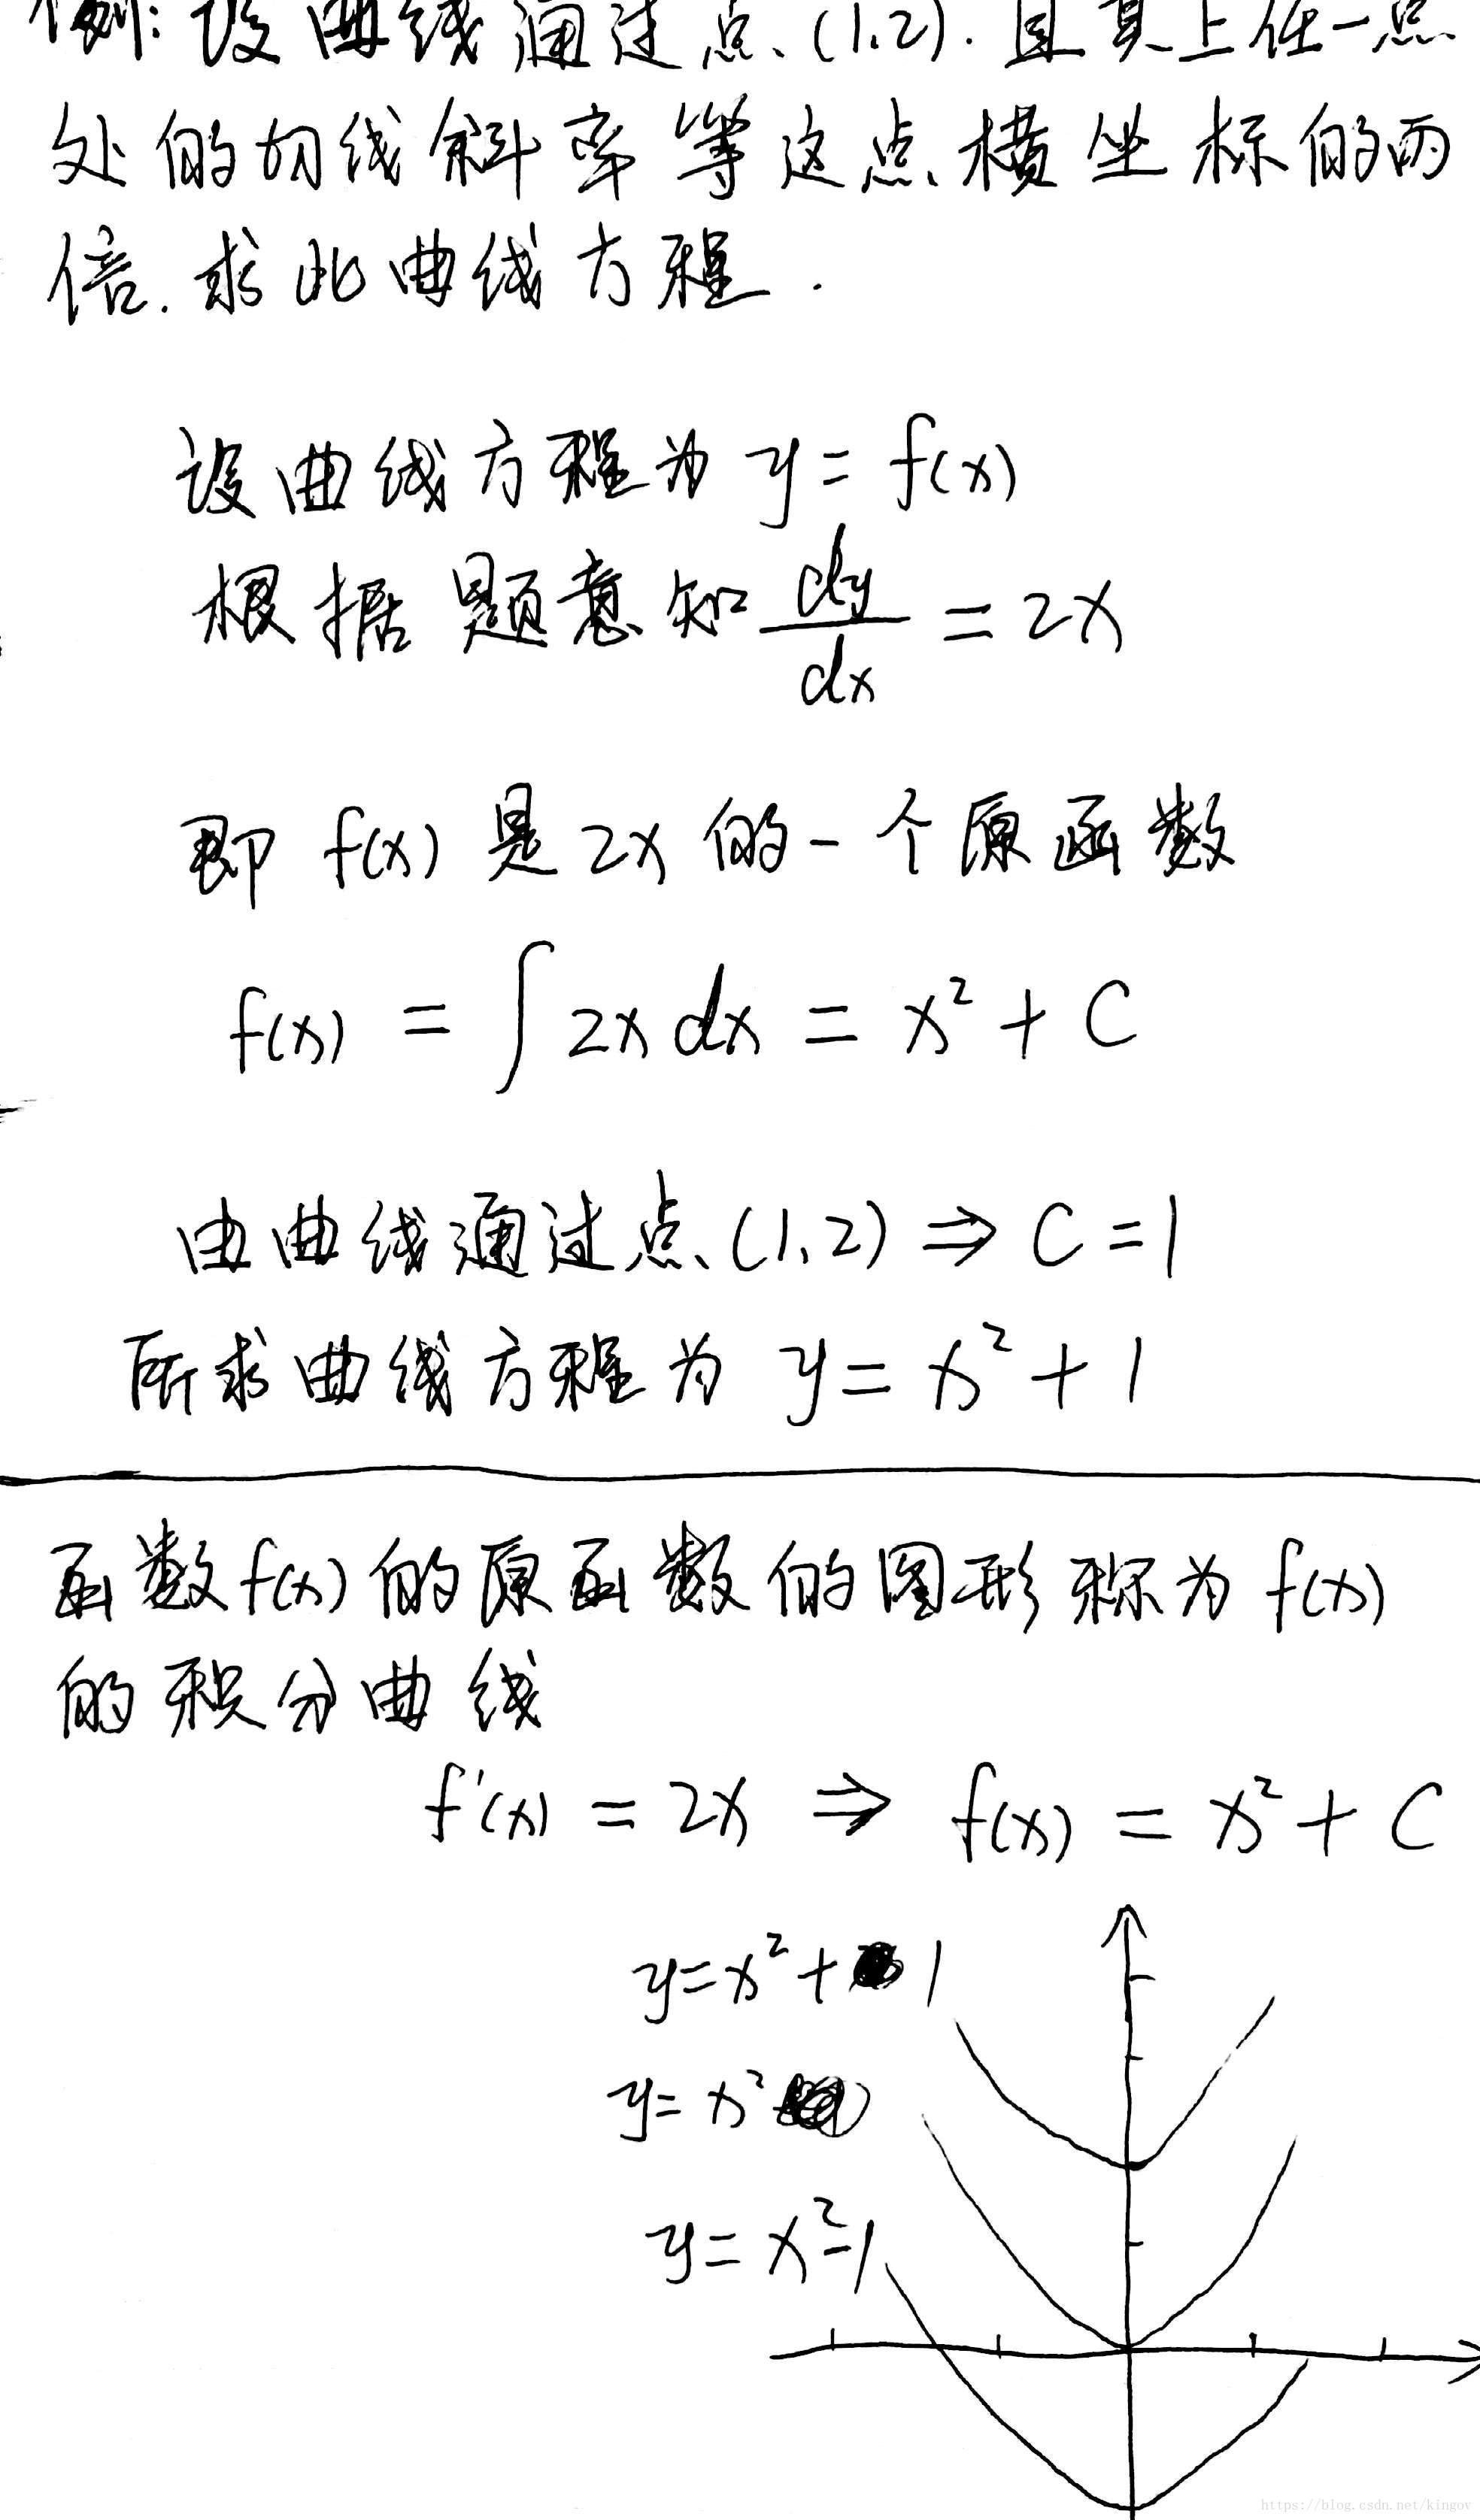 例:设曲线通过点(1.2).且其上任一点
处的切线斜率等这点横坐标的两
倍.求此曲线方程.
设曲线方程为 y = f(x)
根据题意知 dy/dx = 2x
即 f(x) 是 2x 的一个原函数
f(x) = ∫ 2x dx = x² + C
由曲线通过点(1,2) ⇒ C = 1
所求曲线方程为 y = x² + 1
函数f(x)的原函数的图形称为f(x)
的积分曲线
f'(x) = 2x ⇒ f(x) = x² + C
y = x² + 1
y = x²
y = x² - 1
https://blog.csdn.net/kingov